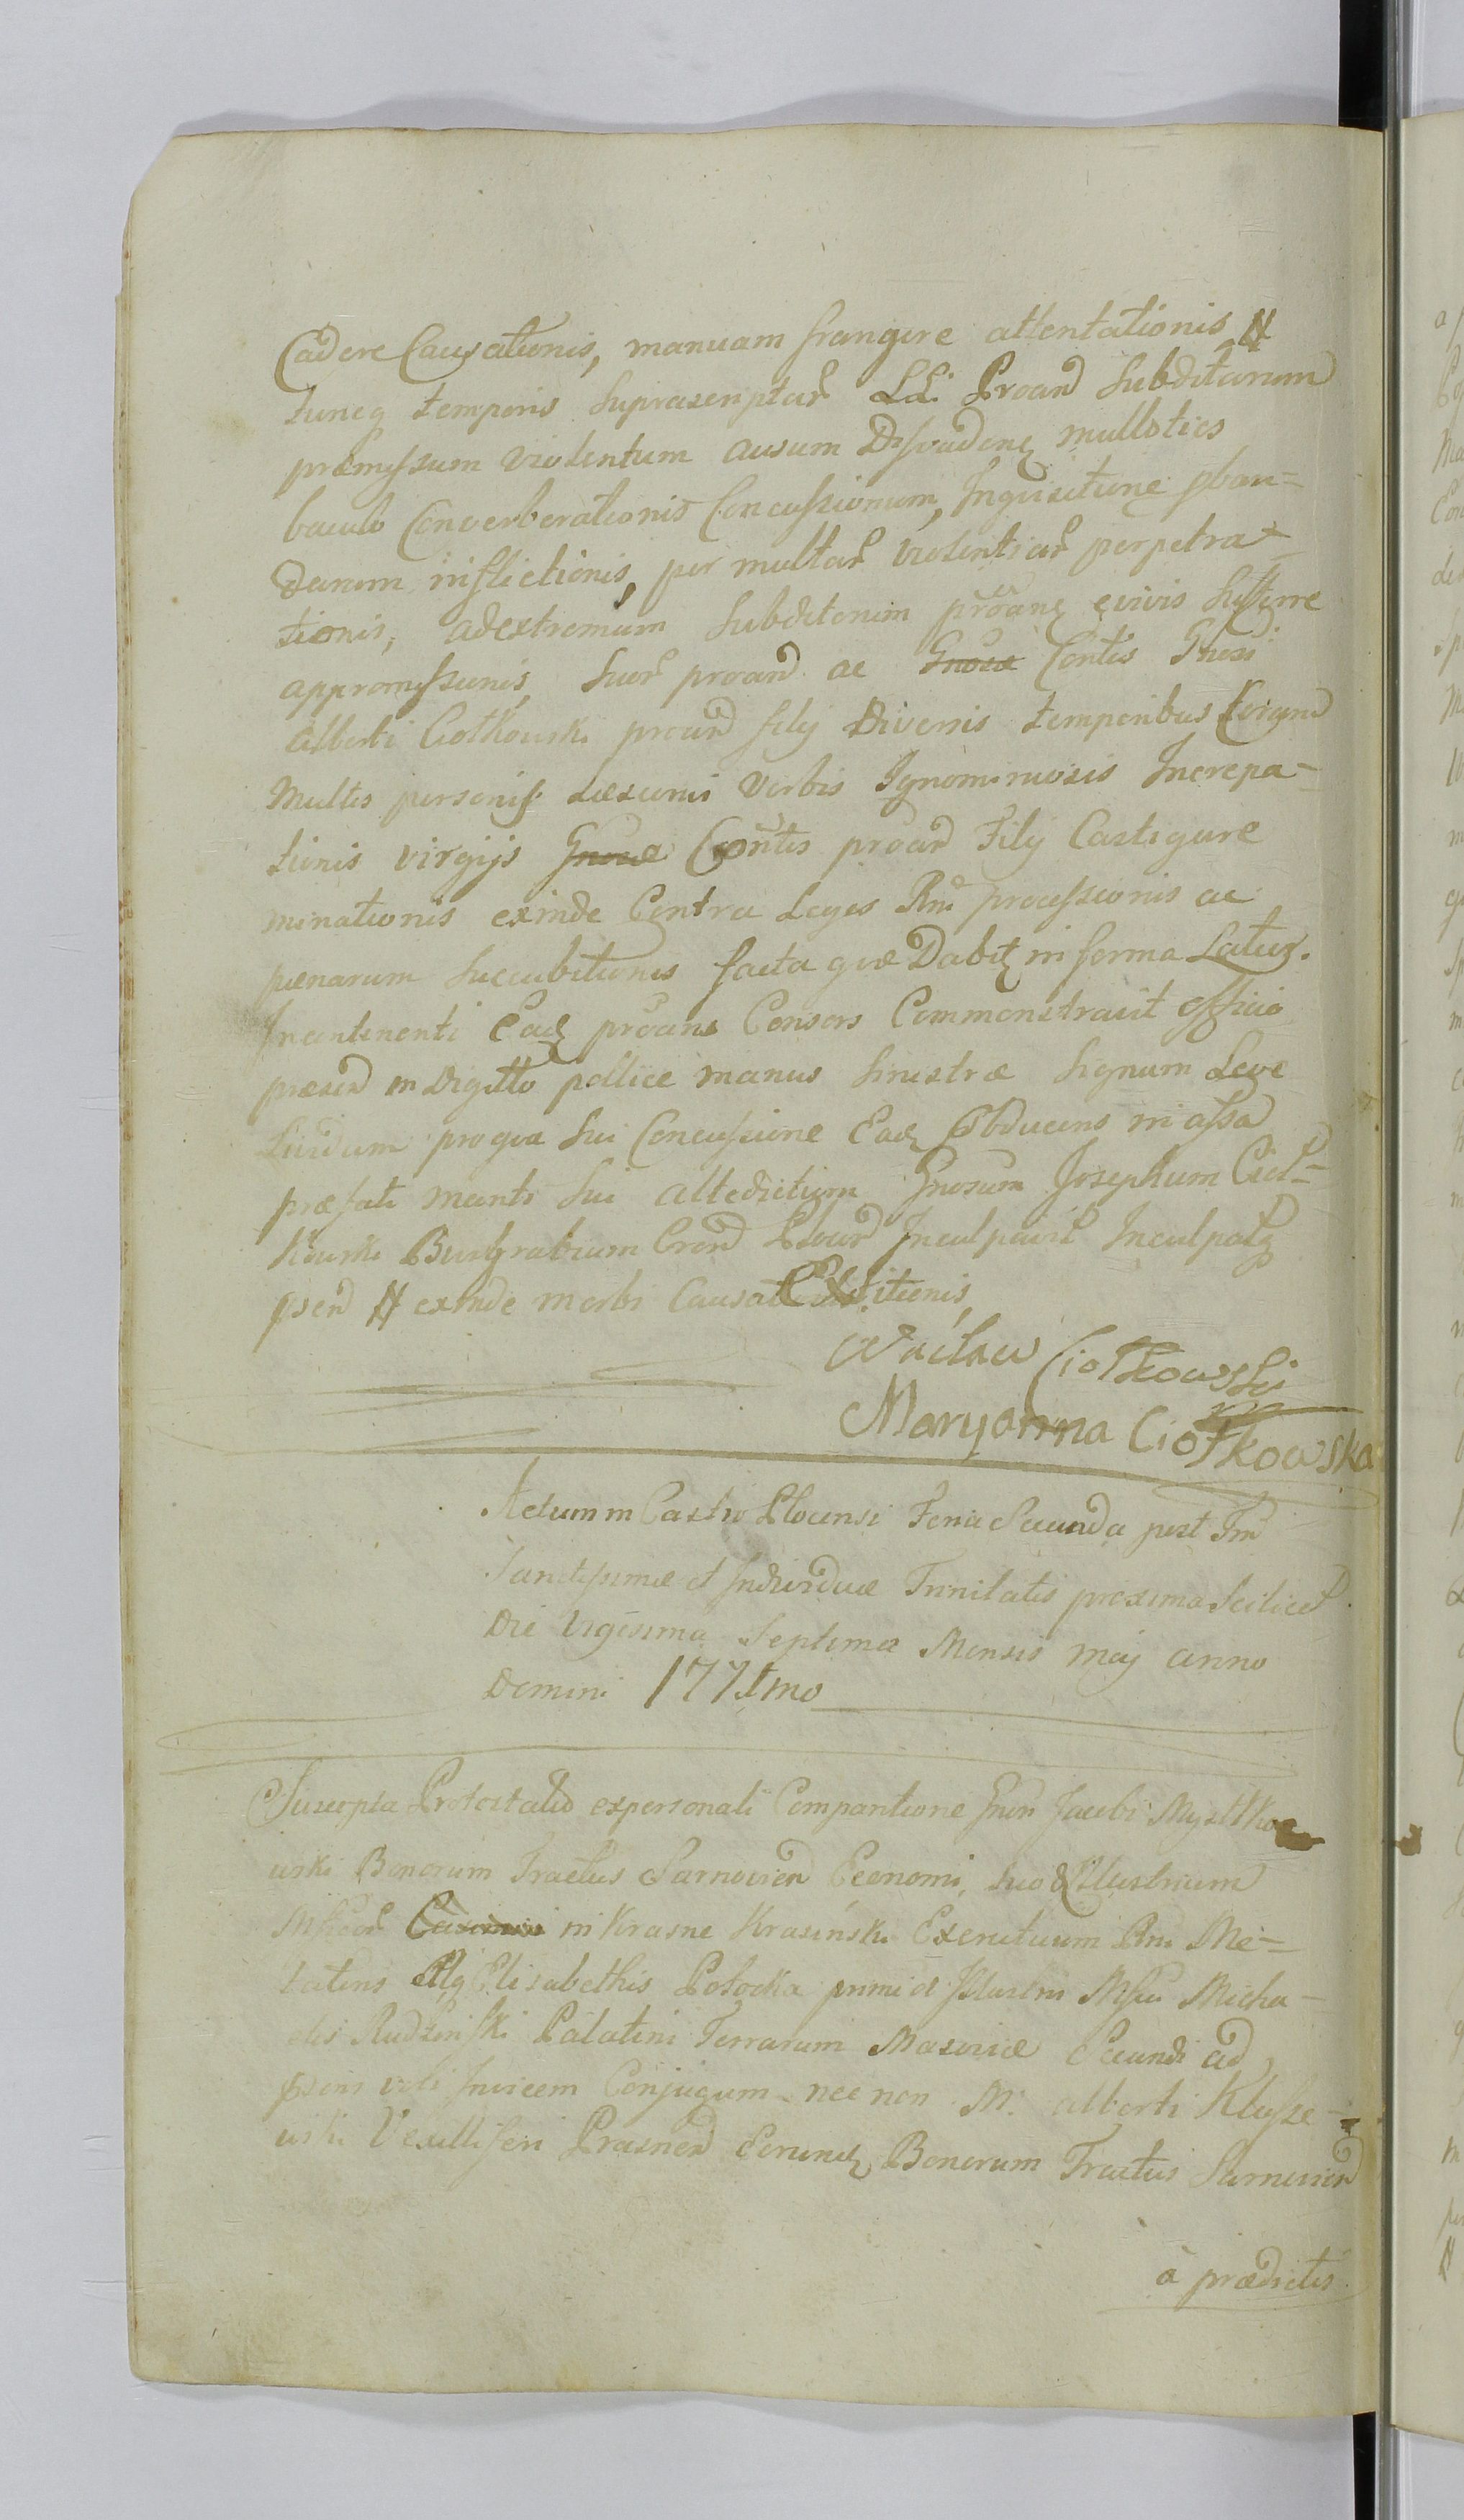 Cadere Causationis, manuam frangere attentationis
tuncq temporis suprascriptar LL: Proand Subditarum
præmissum violentum ausum Disvadene multoties
baculo Converberationis Concussionum, Inquisitione pban=
darum inflictionis, per multar violentiar perpetra=
tionis, adextremum Subditorum proane evivis Sufferre
appromissionis, Suor proand ac Gnosæ Contis Gnosi
Alberti Ciołkowski proand filij Diversis temporibus Corgnd
Multis personis Læsionis Verbis Ignominiosis Increpa=
tionis virgijs Gnosæ Contis proand Filij Castigare
minationis exinde Contra Leges Rni processionis ac
pænarum Succubitionis facta quæ Dabit in forma Latius.
Incontinenti Ead proans Consors Commonstravit officio
præsend in Digitto pollice manus Sinistræ Signum Leve
Lividum pro qua Sui Concussione Ead Obducens in assa
præfati mariti Sui altedictum Gnosum Josephum Cioł=
kowski Burgrabium Crend Plocend Inculpavit Inculpatq
psend exinde morbi Causati Extitionis,
Wacław Ciołkowski
Maryanna Ciołkowska
Actum in Castro Plocensi Feria Secunda post Fm
Sanctissimæ et Individuæ Trinitatis proxima Scilicet
Die Vigesima Septima Mensis Maij anno
Domini 1771mo
Suscepta Protestatio expersonali Comparitione Gnin Jacobi Mystko=
wski Bonorum Tractus Sarnovien Economi, suo & Illustrium
Msficor Casimiri in Krasne Krasiński Exercituum Rni Me=
tatoris Elisabethis Potocka primi et Illustris Msfci Micha=
elis Rudziński Palatini Terrarum Masoviæ Secundi ad
psens voti Invicem Conjugum nec non M: alberti Klusze=
wski Vexilliferi Prasnen Eorund Bonorum Tractus Sarnovien
à prædictis